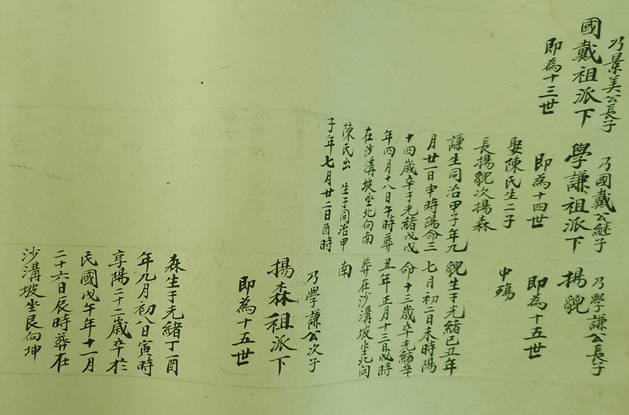 乃景美公長子
國戴祖派下
即為十三世
乃國戴公継子
學謙祖派下
即為十四世
娶陳氏生二子
長揚貌次揚森
謙生同治甲子年九
月廿一日申時陽命三
十四歲卒于光緒戊戌
年四月十八日午時葬
在沙溝坡坐北向南
陳氏出 生于同治甲
子年七月廿二日酉時
乃學謙公長子
揚貌
即為十五世
中殤
貌生于光緒己丑年
七月初二日未時陽
命十三歲卒光緒辛
丑年正月十三日戌時
葬在沙溝坡坐北向
南
乃學謙公次子
揚森祖派下
即為十五世
森生于光緒丁酉
年九月初八日寅時
享陽二十二歲卒於
民國戊午年十一月
二十六日辰時葬在
沙溝坡坐艮向坤